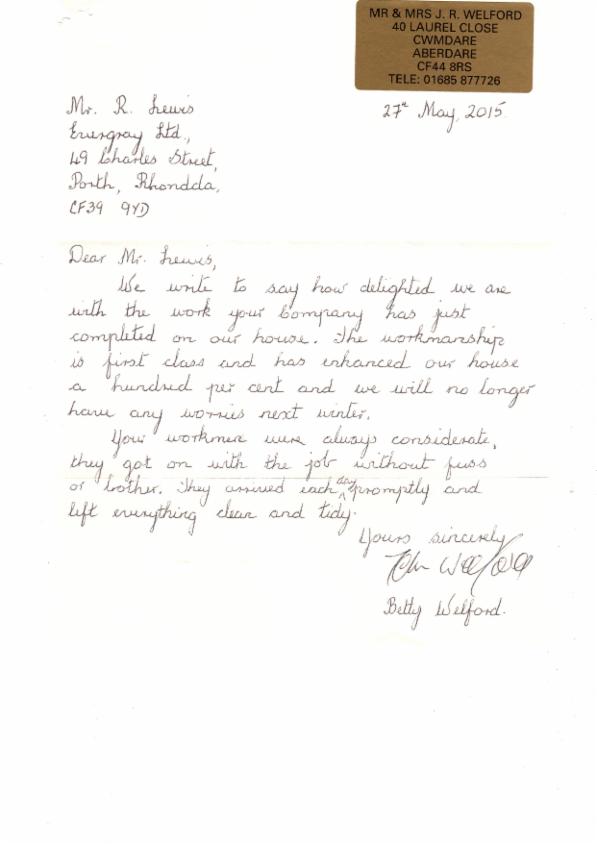 MR & MRS J. R. WELFORD
40 LAUREL CLOSE
CWMDARE
ABERDARE
CF44 8RS
TELE: 01685 877726
27th May, 2015.
Mr. R. Lewis
Energray Ltd.,
49 Charles Street,
Porth, Rhondda,
CF39 9YD
Dear Mr. Lewis,
We write to say how delighted we are
with the work your Company has just
completed on our house. The workmanship
is first class and has enhanced our house
a hundred per cent and we will no longer
have any worries next winter.
Your workmen were always considerate,
they got on with the job without fuss
or bother. They arrived each day promptly and
left everything clean and tidy.
Yours sincerely
John Welford
Betty Welford.